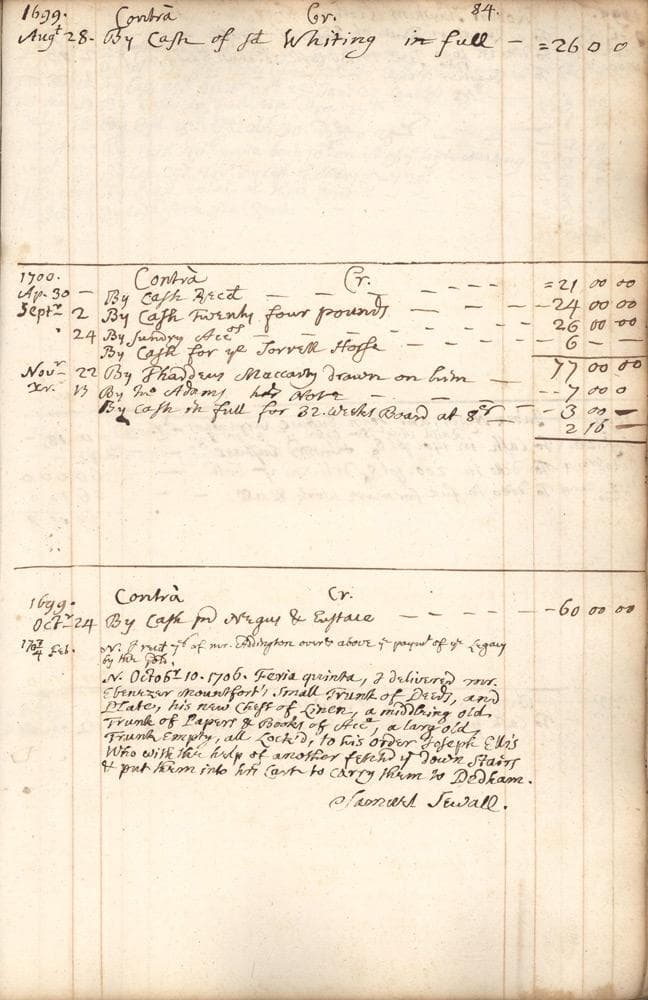 1699. Contrà Cr. 84.
Augt 28. By Cash of sd Whiting in full — =26 0 0
1700. Contrà Cr.
Ap. 30 — By Cash Recd — — — — — — =21 00 00
Septr 2 By Cash Twenty four pounds — — — 24 00 00
24 By Sundry Accots — — — — — — 26 00 00
By Cash for ye Sorrell Horse — — — 6 — —
77 00 00
Novr 22 By Thaddeus Maccarty drawn on him — 7 00 0
Xr. 13 By Mr Adams his Note — — — — 3 00 —
By Cash in full for 32. Weeks Board at 8s pr — 2 16 —
1699. Contrà Cr.
Octr 24 By Cash pd Negus & Eustace — — — — 60 00 00
170¾ Feb. N. I recd yt of mr. Addington over & above ye paymt of ye Legacy
by the
N. Octobr 10. 1706. Feria quinta, I delivered mr.
Ebenezer Mountfort's Small Trunk of Deeds, and
Plate, his new Chest of Linen, a middling old
Trunk of Papers & Books of Acco, a larg old
Trunk Empty, all Lock'd, to his Order Joseph Ellis
Who with the help of another fetch'd ym down Stairs
& put them into his Cart to carry them to Dedham.
Samuel Sewall.